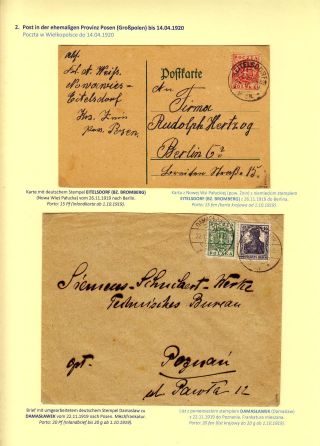 2. Post in der ehemaligen Provinz Posen (Großpolen) bis 14.04.1920
Poczta w Wielkopolsce do 14.04.1920
Postkarte
POCZTA
EITELSDORF
Abs.
Nowawies-
Eitelsdorf
prov. Posen
An Firma
Rudolph Hertzog
Berlin C²
Breitestraße 15.
Karte mit deutschem Stempel EITELSDORF (BZ. BROMBERG)
(Nowa Wieś Pałucka) vom 26.11.1919 nach Berlin.
Porto: 15 Pf (Inlandkarte ab 1.10.1919).
Karta z Nowej Wsi Pałuckiej (pow. Żnin) z niemieckim stemplem
EITELSDORF (BZ. BROMBERG) z 26.11.1919 do Berlina.
Porto: 15 fen (karta krajowa od 1.10.1919).
Siemens-Schuckert-Werke
Technisches Bureau
Poznań
ul. Pawła 12
Brief mit umgearbeiteten deutschem Stempel Damaslaw zu
DAMASŁAWEK vom 22.11.1919 nach Posen. Mischfrankatur.
Porto: 20 Pf (Inlandbrief bis 20 g ab 1.10.1919).
List z poniemieckim stemplem DAMASŁAWEK (Damaslaw)
z 22.11.1919 do Poznania. Frankatura mieszana.
Porto: 20 fen (list krajowy do 20 g od 1.10.1919).